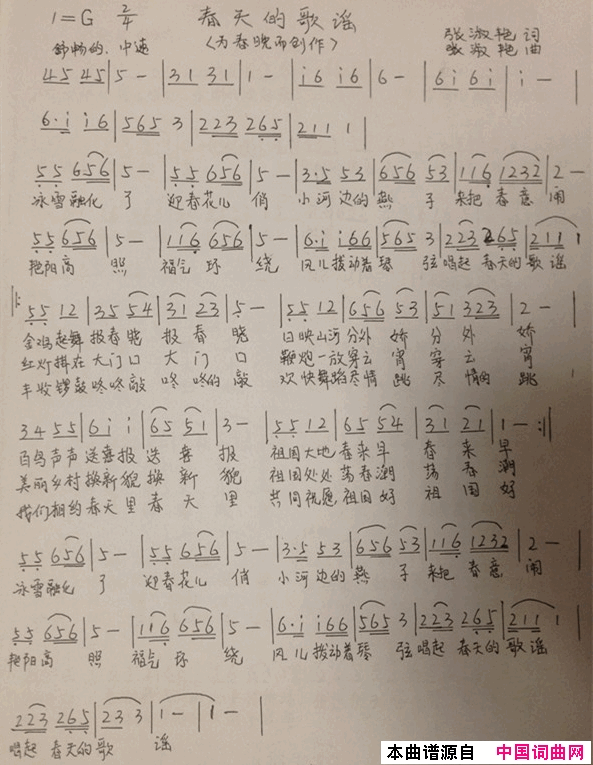 1=G 2/4 春天的歌谣
舒畅的、中速 (为春晚而创作) 张淑艳 词
张淑艳 曲
45 45 | 5 - | 31 31 | 1 - | i6 i6 | 6 - | 6i 6i | i - |
6·i i6 | 565 3 | 223 265 | 211 1 |
55 656 | 5 - | 55 656 | 5 - | 3·5 53 | 656 53 | 116 1232 | 2 -
冰雪融化 了 迎春花儿 俏 小河边的燕 子 来把 春意 闹
55 656 | 5 - | 116 656 | 5 - | 6·i i66 | 565 3 | 223 265 | 211 1
艳阳高 照 福气 环 绕 风儿拨动着琴 弦 唱起 春天的歌 谣
‖: 55 12 | 35 54 | 31 23 | 5 - | 55 12 | 656 53 | 51 323 | 2 - |
金鸡起舞 报春晓 报 春 晓 日映山河分外 娇 分 外 娇
红灯挂在大门口 大 门 口 鞭炮一放穿云 宵 穿 云 宵
丰收锣鼓咚咚敲 咚 咚的 敲 欢快舞蹈尽情 跳 尽 情的 跳
34 55 | 6i i | 65 51 | 3 - | 55 12 | 65 54 | 31 21 | 1 - :‖
百鸟声声送喜报 送 喜 报 祖国大地春来早 春 来 早
美丽乡村换新貌 换 新 貌 祖国处处荡春潮 荡 春 潮
我们相约春天里 春 天 里 共同祝愿祖国好 祖 国 好
55 656 | 5 - | 55 656 | 5 - | 3·5 53 | 656 53 | 116 1232 | 2 - |
冰雪融化 了 迎春花儿 俏 小河边的燕 子 来把 春意 闹
55 656 | 5 - | 116 656 | 5 - | 6·i i66 | 565 3 | 223 265 | 211 1 |
艳阳高 照 福气 环 绕 风儿拨动着琴 弦 唱起 春天的歌 谣
223 265 | 223 3 | 1 - | 1 - |
唱起 春天的歌 谣
本曲谱源自 中国词曲网